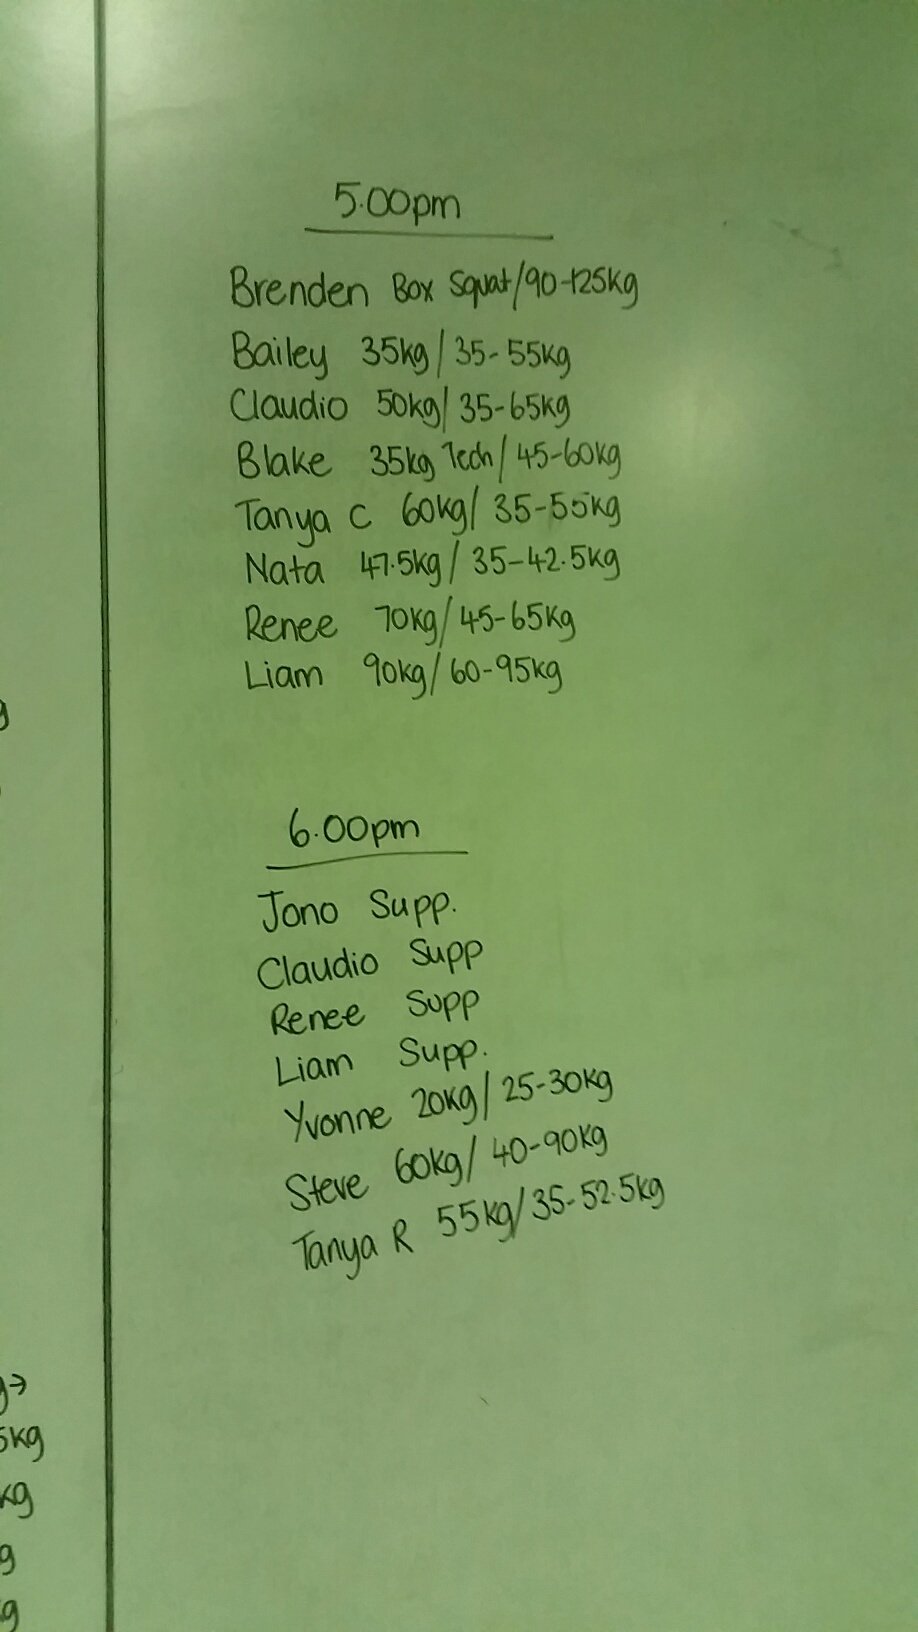 5.00pm
Brenden Box Squat/90-125kg
Bailey 35kg/35-55kg
Claudio 50kg/35-65kg
Blake 35kg Tech/45-60kg
Tanya C 60kg/35-55kg
Nata 47.5kg/35-42.5kg
Renee 70kg/45-65kg
Liam 90kg/60-95kg
6.00pm
Jono Supp.
Claudio Supp
Renee Supp
Liam Supp.
Yvonne 20kg/25-30kg
Steve 60kg/40-90kg
Tanya R 55kg/35-52.5kg
g→
5kg
kg
g
g